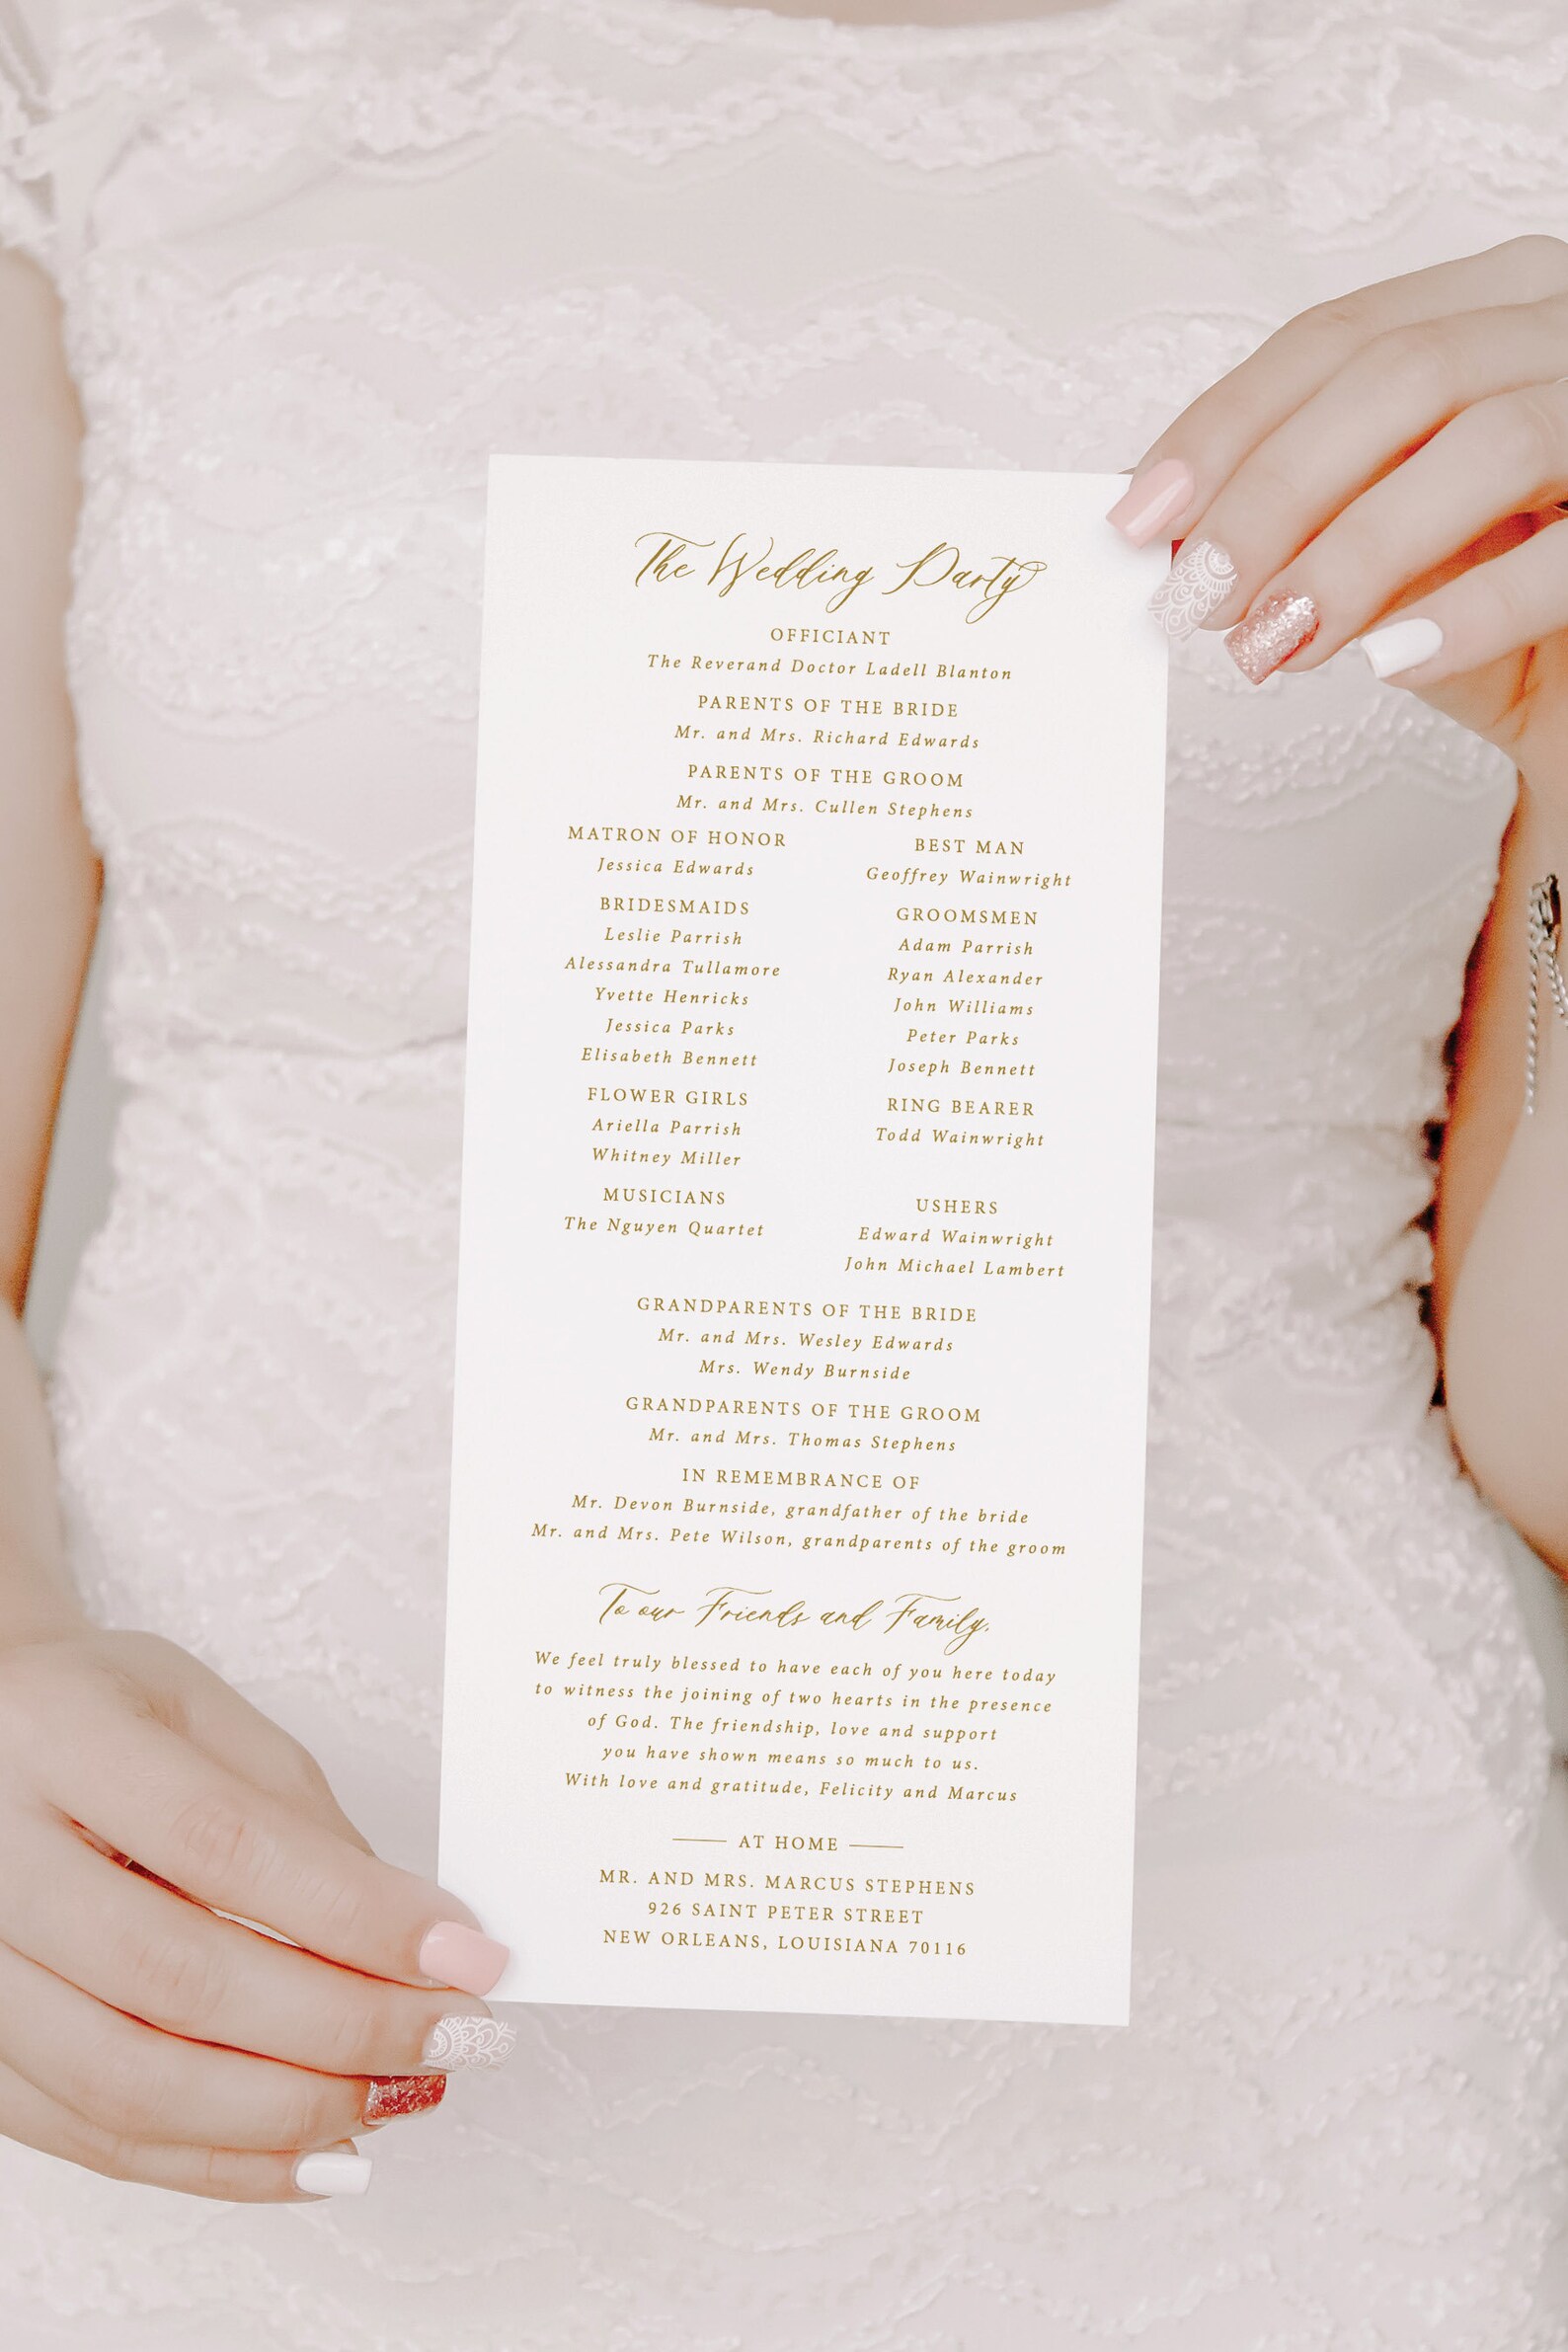 The Wedding Party
OFFICIANT
The Reverand Doctor Ladell Blanton
PARENTS OF THE BRIDE
Mr. and Mrs. Richard Edwards
PARENTS OF THE GROOM
Mr. and Mrs. Cullen Stephens
MATRON OF HONOR
Jessica Edwards
BRIDESMAIDS
Leslie Parrish
Alessandra Tullamore
Yvette Henricks
Jessica Parks
Elisabeth Bennett
FLOWER GIRLS
Ariella Parrish
Whitney Miller
MUSICIANS
The Nguyen Quartet
BEST MAN
Geoffrey Wainwright
GROOMSMEN
Adam Parrish
Ryan Alexander
John Williams
Peter Parks
Joseph Bennett
RING BEARER
Todd Wainwright
USHERS
Edward Wainwright
John Michael Lambert
GRANDPARENTS OF THE BRIDE
Mr. and Mrs. Wesley Edwards
Mrs. Wendy Burnside
GRANDPARENTS OF THE GROOM
Mr. and Mrs. Thomas Stephens
IN REMEMBRANCE OF
Mr. Devon Burnside, grandfather of the bride
Mr. and Mrs. Pete Wilson, grandparents of the groom
To our Friends and Family,
We feel truly blessed to have each of you here today
to witness the joining of two hearts in the presence
of God. The friendship, love and support
you have shown means so much to us.
With love and gratitude, Felicity and Marcus
AT HOME
MR. AND MRS. MARCUS STEPHENS
926 SAINT PETER STREET
NEW ORLEANS, LOUISIANA 70116